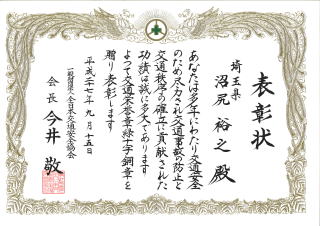 表彰状
埼玉県
沼尻 裕之 殿
あなたは多年にわたり交通安全
のため尽力され交通事故の防止と
交通秩序の確立に貢献された
功績は誠に多大であります
よって交通栄誉章緑十字銅章を
贈り表彰します
平成二十七年九月十五日
一般財団法人全日本交通安全協会
会長 今井 敬